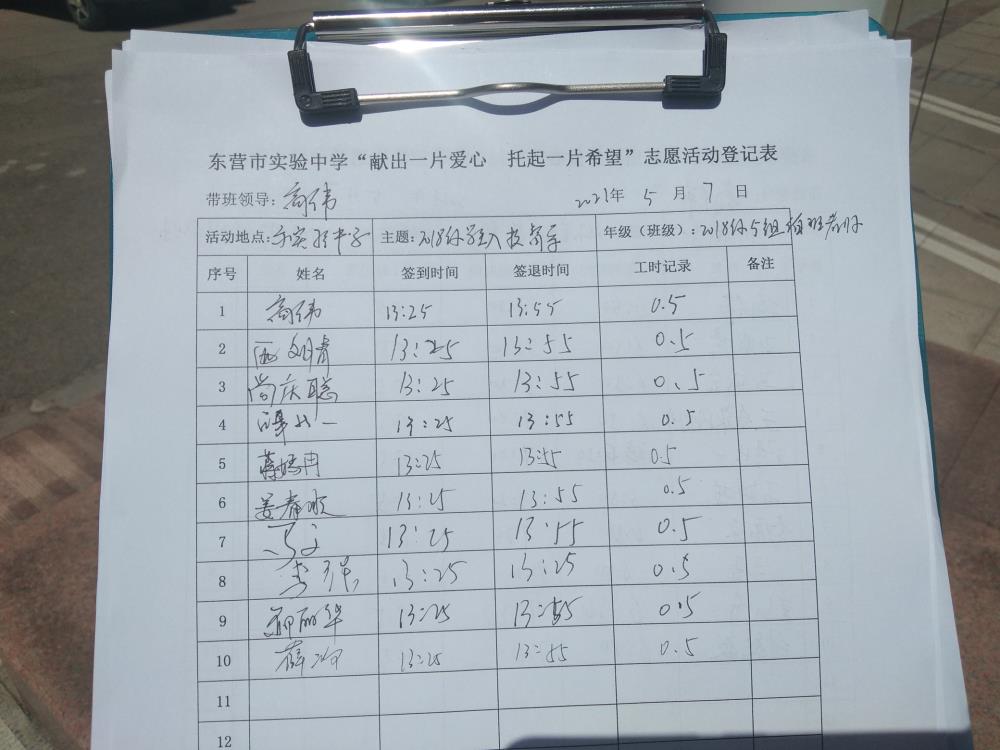 东营市实验中学“献出一片爱心 托起一片希望”志愿活动登记表
带班领导：高伟 2021年 5 月 7 日
活动地点： 主题：2018级 年级（班级）：2018级
序号 姓名 签到时间 签退时间 工时记录 备注
1 高伟 13:25 13:55 0.5
2 13:25 13:55 0.5
3 尚庆聪 13:25 13:55 0.5
4 13:25 13:55 0.5
5 13:25 13:55 0.5
6 姜春波 13:25 13:55 0.5
7 13:25 13:55 0.5
8 李强 13:25 13:25 0.5
9 13:25 13:55 0.5
10 13:25 13:55 0.5
11
12